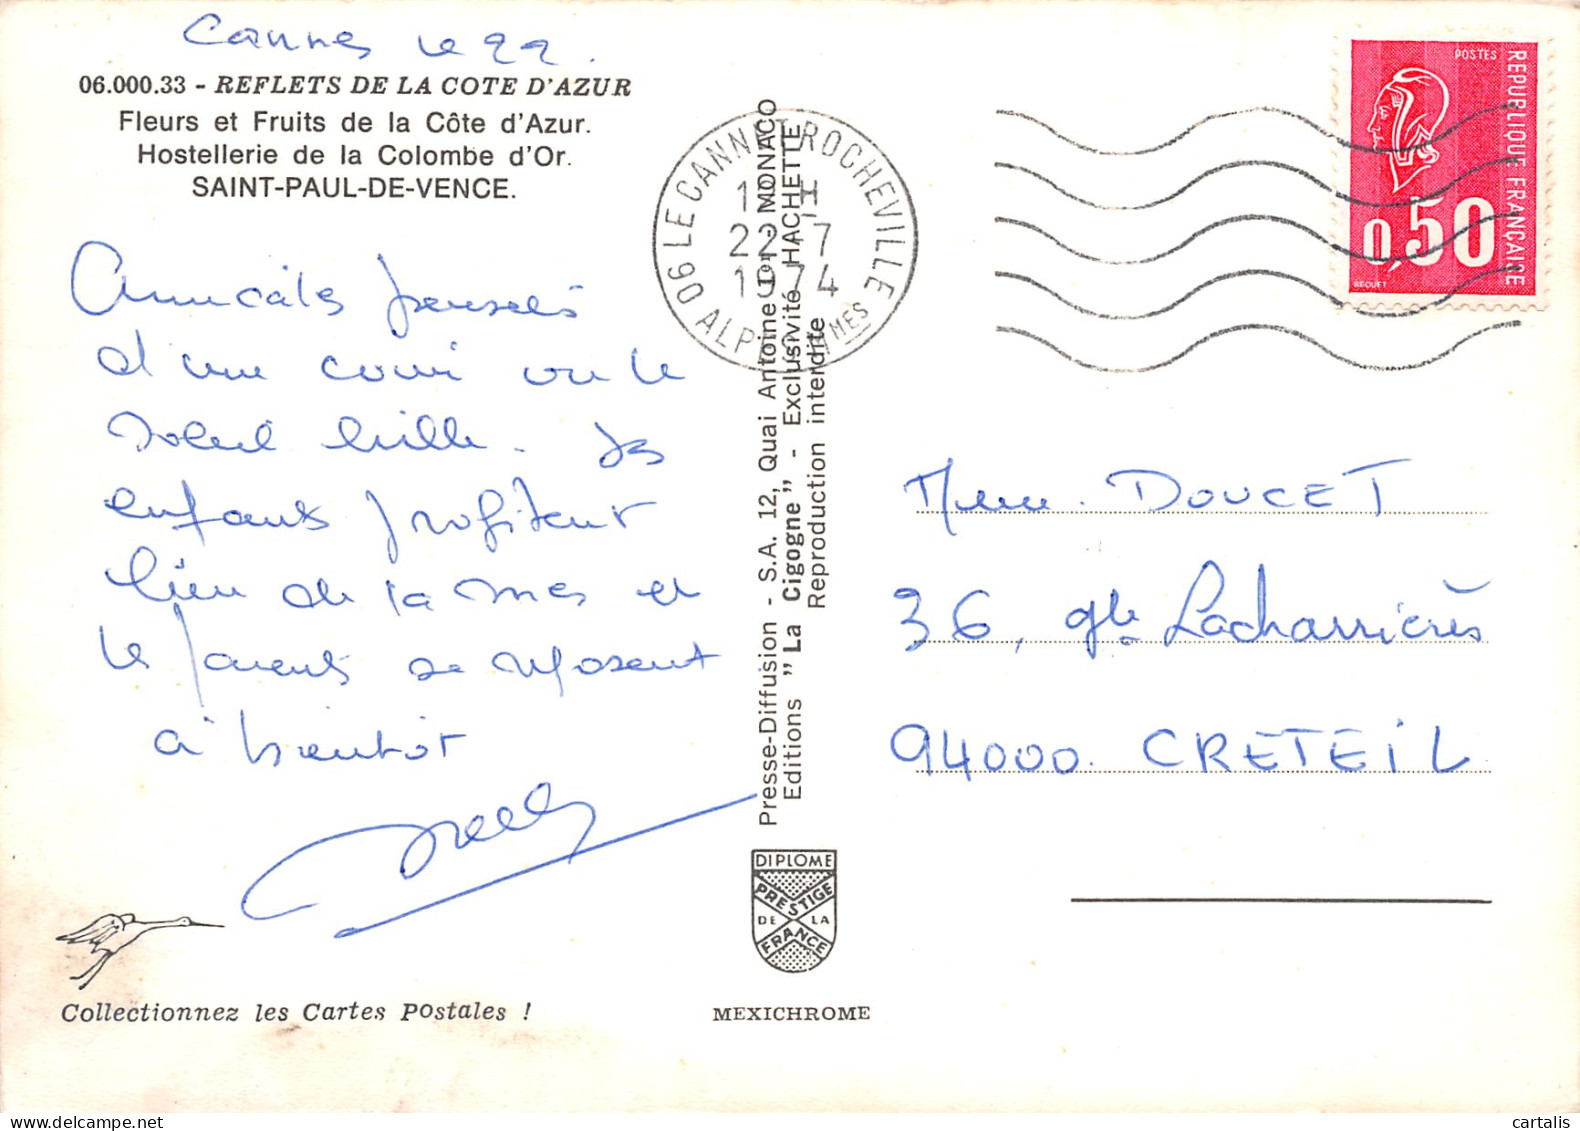 Cannes le 22.
06.000.33 - REFLETS DE LA COTE D'AZUR
Fleurs et Fruits de la Côte d'Azur.
Hostellerie de la Colombe d'Or.
SAINT-PAUL-DE-VENCE.
Amicales pensées
d'une cour où le
soleil brille. Les
enfants profitent
bien de la mer et
les parents se reposent
à bientôt
Collectionnez les Cartes Postales !
Presse-Diffusion - S.A. 12, Quai Antoine 1er - MONACO
Editions " La Cigogne " - Exclusivité HACHETTE
Reproduction interdite
DIPLOME
PRESTIGE
DE LA
FRANCE
MEXICHROME
06 LE CANNET ROCHEVILLE
22-7
1974
ALPES MMES
POSTES
REPUBLIQUE FRANÇAISE
0,50
BEQUET
Mme. DOUCET
36, gde Lacharrières
94000. CRETEIL
cartalis